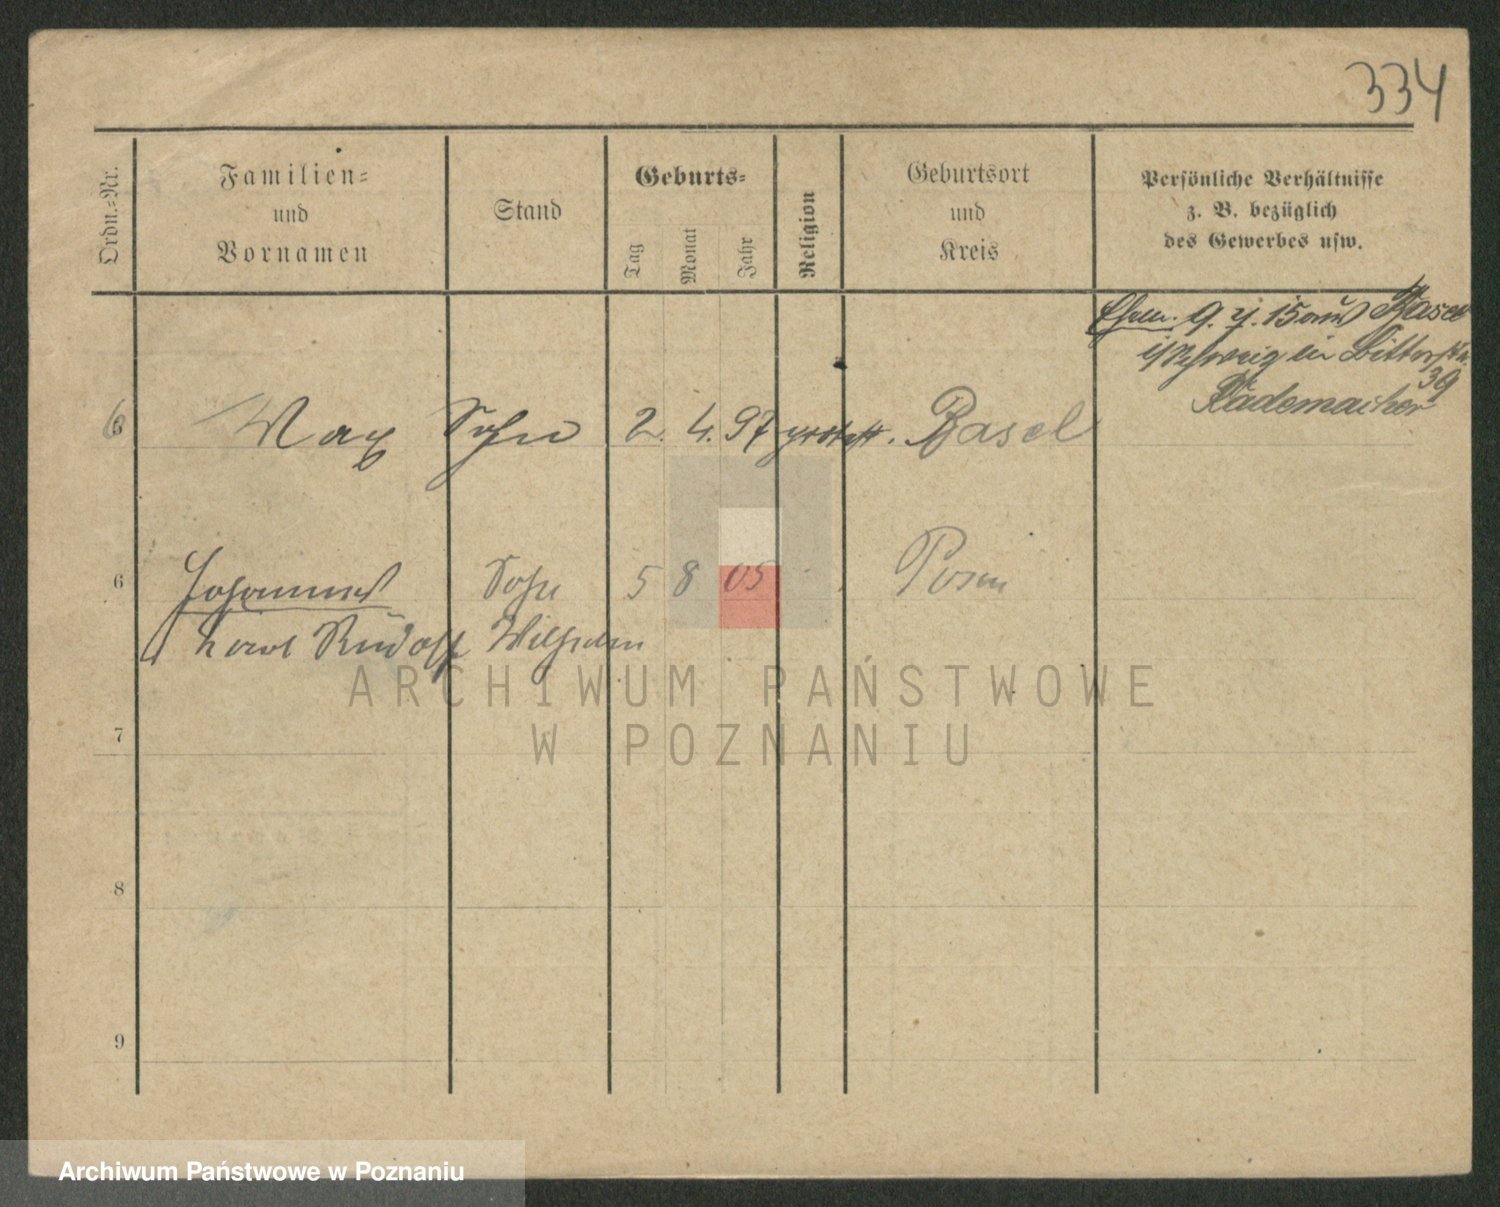 334
Ordn.-Nr.
Familien-
und
Vornamen
Stand
Geburts-
Tag
Monat
Jahr
Religion
Geburtsort
und
Kreis
Persönliche Verhältnisse
z. B. bezüglich
des Gewerbes usw.
9. 7. 15 aus Basel
in
39
Rademacher
6 Max Sohn 2. 4. 97 protest. Basel
6 Johannes Sohn 5 8 05 Posen
Rudolf Wilhelm
ARCHIWUM PAŃSTWOWE
W POZNANIU
7
8
9
Archiwum Państwowe w Poznaniu